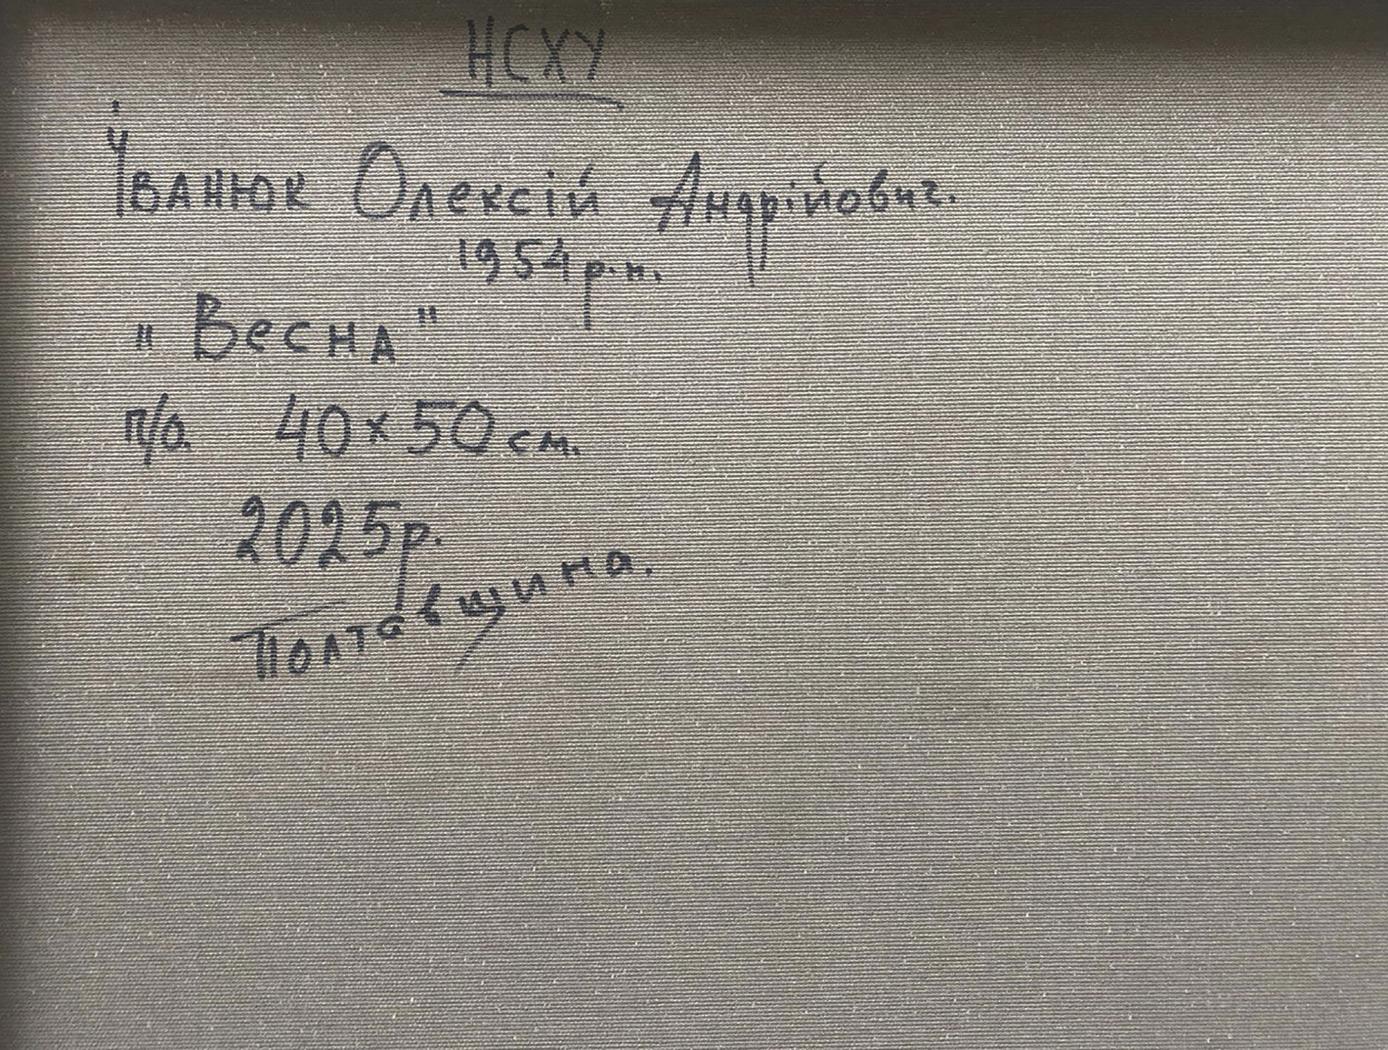 НСХУ
Іванюк Олексій Андрійович.
1954 р.н.
"Весна"
п/о. 40×50 см.
2025р.
Полтавщина.